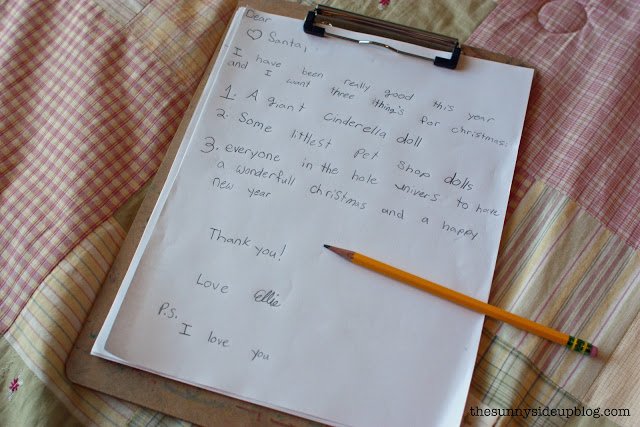 Dear
♡ Santa,
I have been really good this year
and I want three things for christmas:
1. A giant Cinderella doll
2. Some littlest pet shop dolls
3. everyone in the hole univers to have
a wonderfull christmas and a happy
new year
Thank you!
Love Ellie
P.S.
I love you
thesunnysideupblog.com